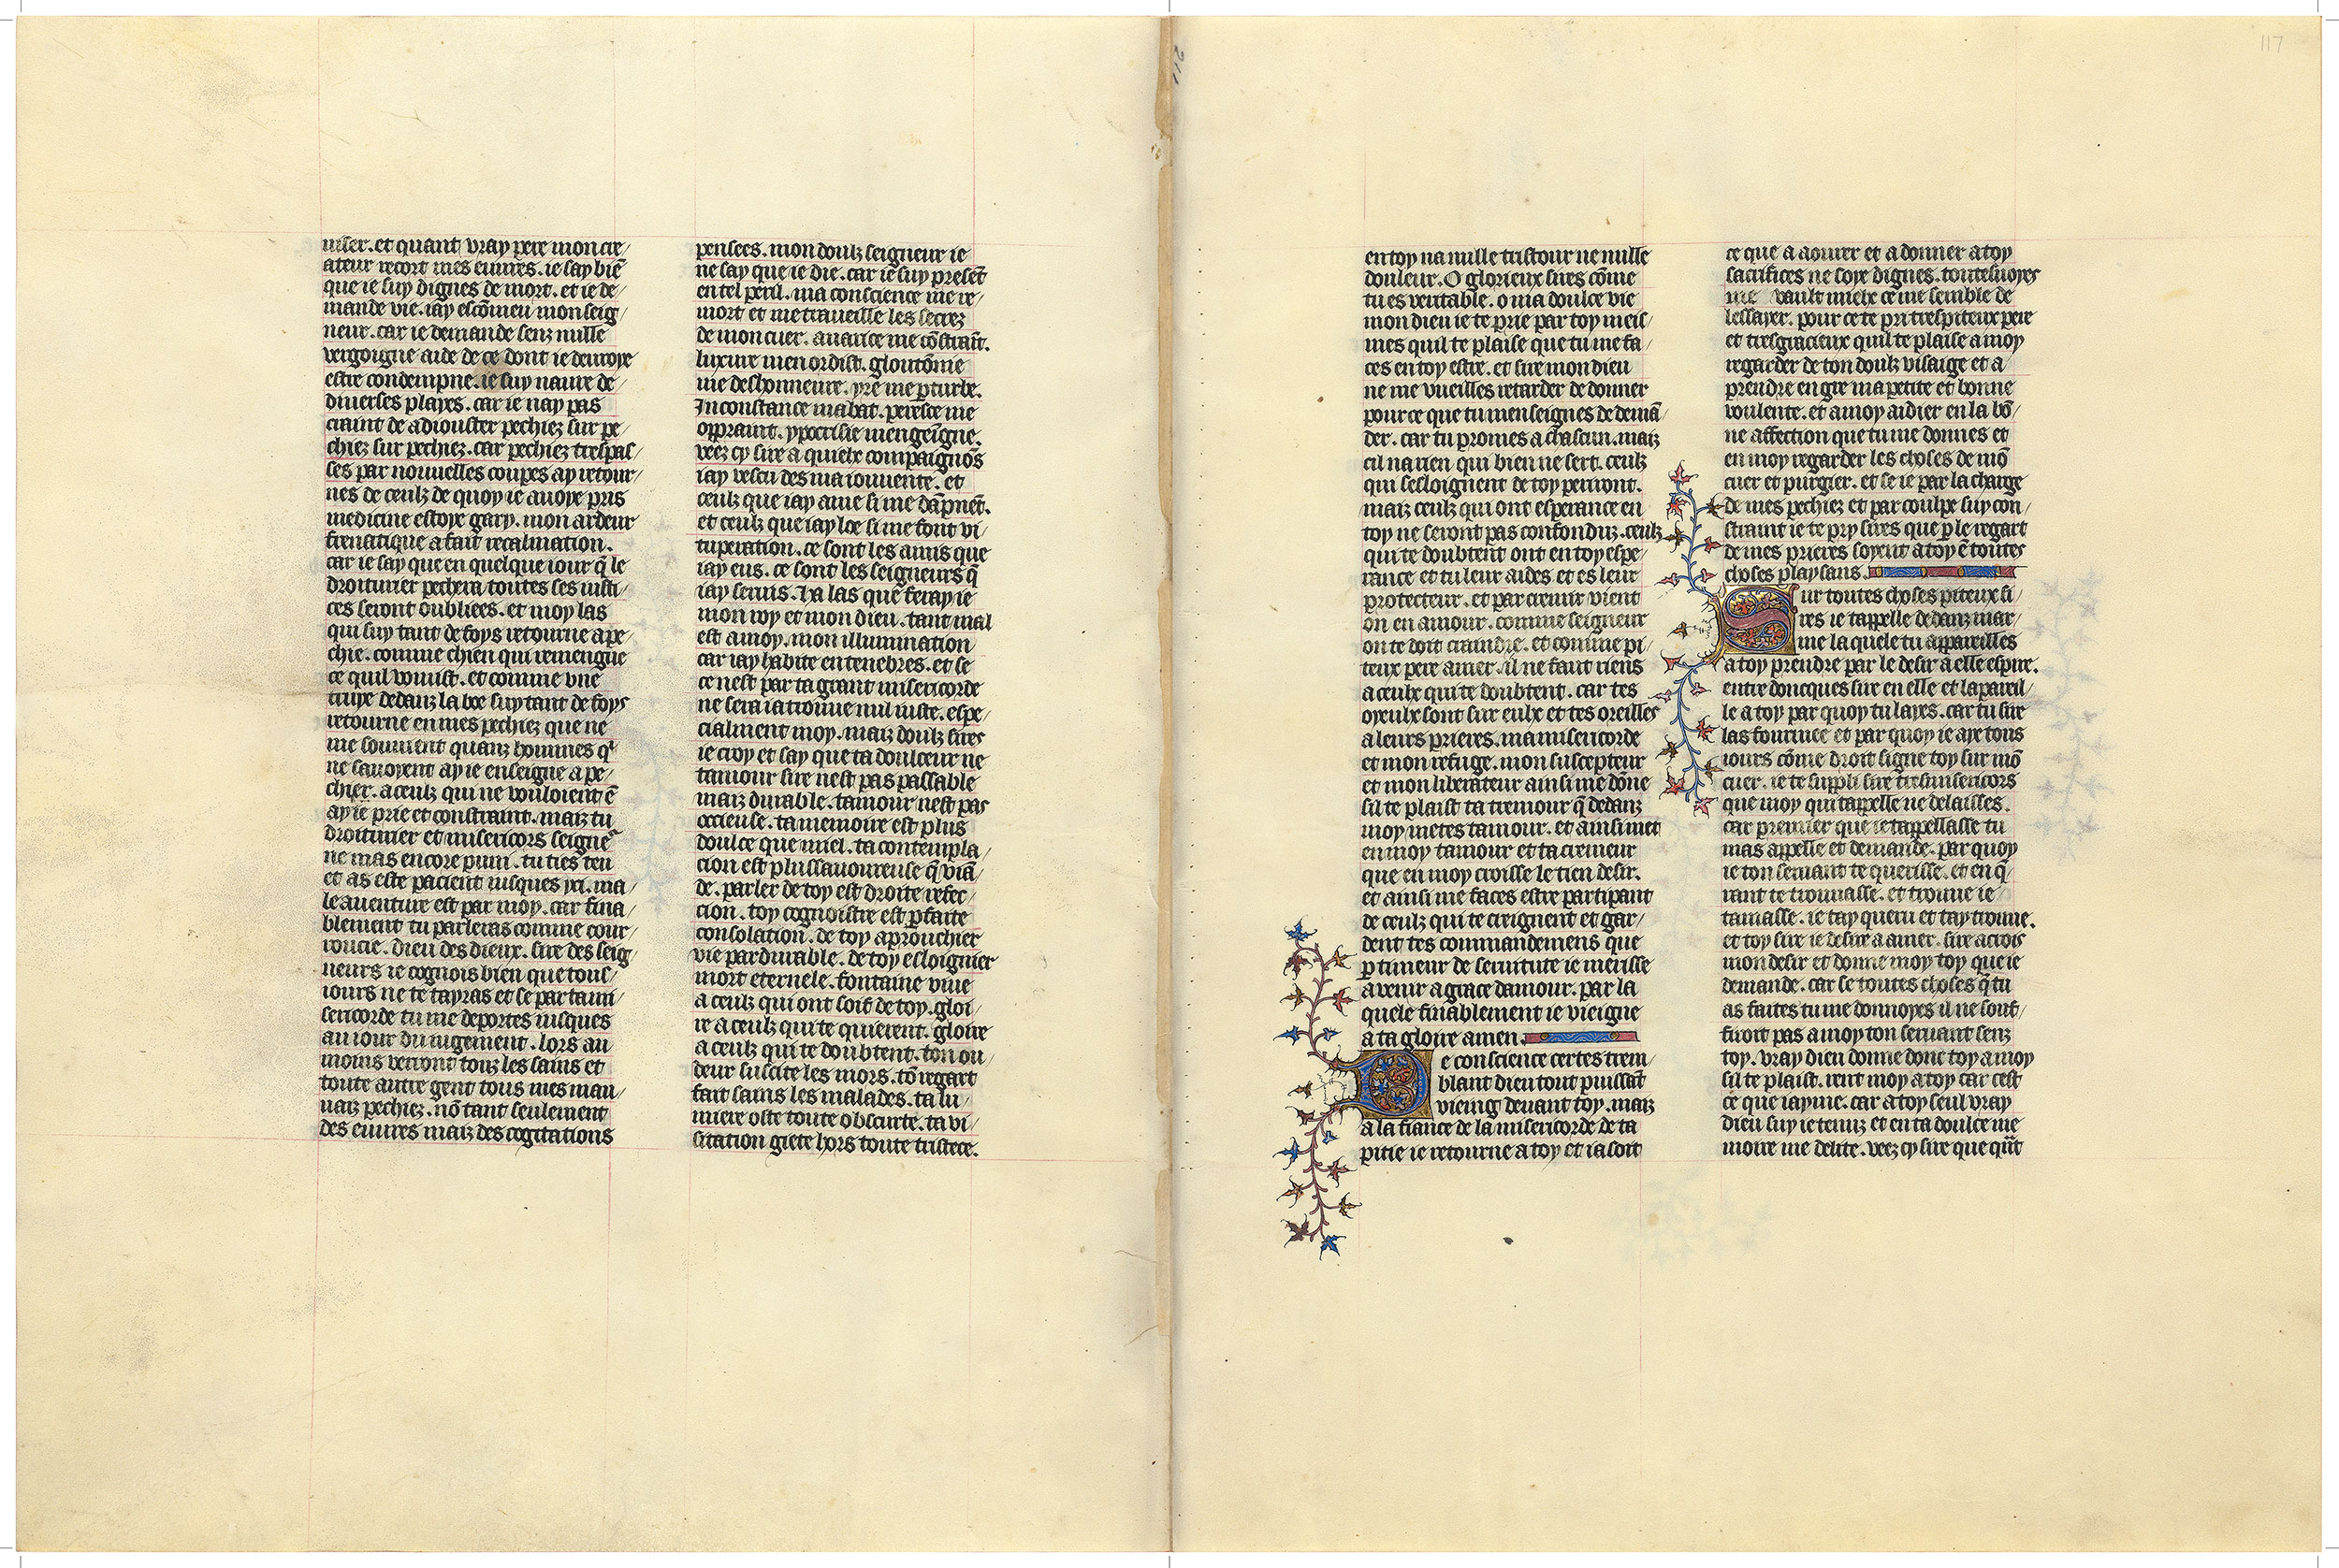 miser. et quant vray pere mon cre/
ateur recort mes euures. ie say biē
que ie suy dignes de mort. et ie de/
mande vie. iay escōmeu mon seig/
neur. car ie demande senz nulle
vergoigne aide de ce dont ie deuroye
estre condempne. ie suy naure de/
diuerses playes. car ie nay pas
craint de adiouster pechiez sur pe/
chiez sur pechiez. car pechiez trespas/
ses par nouuelles coupes ay retour/
nes de ceulz de quoy ie auoye pris
medicine estoye gary. mon ardeur
frenatique a fait recalmation.
car ie say que en quelque iour q̄ le
droiturier pechera toutes ses iusti/
ces seront oubliees. et moy las
qui suy tant de foys retourne a pe/
chie. comme chien qui remengue
ce quil vomist. et comme vne
truye dedanz la boe suy tant de foys
retourne en mes pechiez que ne
me souuient quanz hommes q'
ne sauoyent ay ie enseigne a pe/
chier. a ceulz qui ne vouloient ē
ay ie prie et constraint. maiz tu
droiturier et misericors seigne
ne mas encore puni. tu ties teu
et as este pacient iusques yci. ma/
le auenture est par moy. car fina/
blement tu parleras comme cour/
roucie. dieu des dieux. sire des seig/
neurs ie cognois bien que tous/
iours ne te tayras et se par ta mi/
sericorde tu me deportes iusques
au iour du iugement. lors au
moins verront touz les sains et
toute autre gent tous mes mau/
uaiz pechiez. nō tant seulement
des euures maiz des cogitations
pensees. mon doulz seigneur ie
ne say que ie die. car ie suy presēt
en tel peril. ma conscience me re/
mort et me traueille les secrez
de mon cuer. auarice me cōstraīt.
luxure men ordist. gloutōnie
me deshonneure. yre me p̱turbe.
Inconstance mabat. peresce me
oppraint. ypocrisie mengeīgne.
veez cy sire a quielx compaignōs
iay vescu des ma iouuente. et
ceulz que iay ame si me dāpnēt.
et ceulz que iay loe si me font vi/
tuperation. ce sont les amis que
iay eus. ce sont les seigneurs q̄
iay seruis. Ha las que feray ie
mon roy et mon dieu. tant mal
est a moy. mon illumination
car iay habite en tenebres. et se
ce nest par ta grant misericorde
ne sera ia trouue nul iuste. espe/
cialment moy. maiz doulz sires
ie croy et say que ta doulceur ne
tamour sire nest pas passable
maiz durable. tamour nest pas
occieuse. ta memoire est plus
doulce que miel. ta contempla/
cion est plus sauoureuse q̄ viā/
de. parler de toy est droite refec/
cion. toy cognoistre est p̱faite
consolation. de toy aprouchier
vie pardurable. de toy esloignier
mort eternele. fontaine viue
a ceulz qui ont soif de toy. gloi/
re a ceulz qui te quierent. gloire
a ceulz qui te doubtent. ton ou/
deur suscite les mors. tō regart
fait sains les malades. ta lu/
miere oste toute obscurte. ta vi/
sitation giete hors toute tristece.
117
en toy na nulle tristour ne nulle
douleur. O glorieux sires cōme
tu es veritable. o ma doulce vie
mon dieu ie te prie par toy meis/
mes quil te plaise que tu me fa/
ces en toy estre. et sire mon dieu
ne me vueilles retarder de donner
pour ce que tu menseignes de demā/
der. car tu promes a chascun. maiz
cil na rien qui bien ne sert. ceulz
qui sesloignent de toy periront.
maiz ceulz qui ont esperance en
toy ne seront pas confonduz. ceulz
qui te doubtent ont en toy espe/
rance et tu leur aides et es leur
protecteur. et par cremir vient
on en amour. comme seigneur
on te doit craindre. et comme pi/
teux pere amer. il ne faut riens
a ceulx qui te doubtent. car tes
oyeulx sont sur eulx et tes oreilles
a leurs prieres. ma misericorde
et mon refuge. mon suscepteur
et mon liberateur ainsi me dōne
sil te plaist ta cremour q̄ dedanz
moy metes tamour. et ainsi met
en moy tamour et ta cremeur
que en moy croisse le tien desir.
et ainsi me faces estre partipant
de ceulz qui te creignent et gar/
dent tes commandemens que
p̱ timeur de seruitute ie merisse
a venir a grace damour. par la
quele finablement ie vieigne
a ta gloire amen.
De conscience certes trem/
blant dieu tout puissāt
vieing deuant toy. maiz
a la fiance de la misericorde de ta
pitie ie retourne a toy et ia soit
ce que a aourer et a donner a toy
sacrifices ne soye dignes. toutesuoyes
me vault mielx ce me semble de
lessayer. pour ce te pri trespiteux pere
et tresgracieux quil te plaise a moy
regarder de ton doulz visaige et a
prendre en gre ma petite et bonne
voulente. et a moy aidier en la bō/
ne affection que tu me donnes et
en moy regarder les choses de mō
cuer et purgier. et se ie par la charge
de mes pechiez et par coulpe suy con/
straint ie te pry sires que p̱ le regart
de mes prieres soyent a toy ē toutes
choses playsans.
Sur toutes choses piteux si/
res ie tappelle dedanz mar/
me la quele tu appareilles
a toy prendre par le desir a elle espire.
entre doncques sire en elle et lapareil/
le a toy par quoy tu layes. car tu sire
las fourmee et par quoy ie aye tous
iours cōme droit signe toy sur mō
cuer. ie te suppli sire tresmisericors
que moy qui tappelle ne delaisses.
car premier que ie tappellasse tu
mas appelle et demande. par quoy
ie ton seruant te querisse. et en q̄/
rant te trouuasse. et trouue ie
tamasse. ie tay queru et tay trouue.
et toy sire ie desire a amer. sire acrois
mon desir et donne moy toy que ie
demande. car se toutes choses q̄ tu
as faites tu me donnoyes il ne souf/
firoit pas a moy ton seruant senz
toy. vray dieu donne donc toy a moy
sil te plaist. rent moy a toy car cest
ce que iayme. car a toy seul vray
dieu suy ie tenuz et en ta doulce me
moire me delite. veez cy sire que quāt